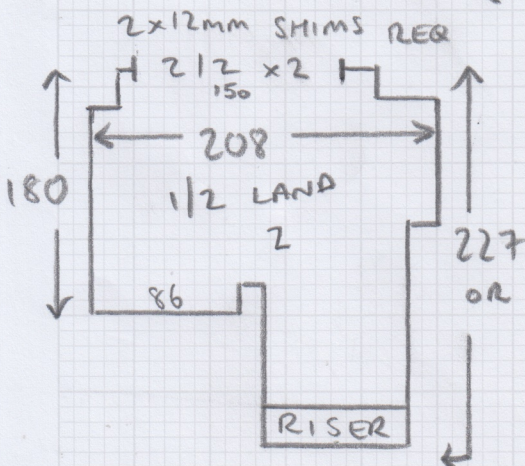 2x12mm SHIMS REQ
212 x 2
150
208
180
1/2 LAND
2
227
OR
86
RISER